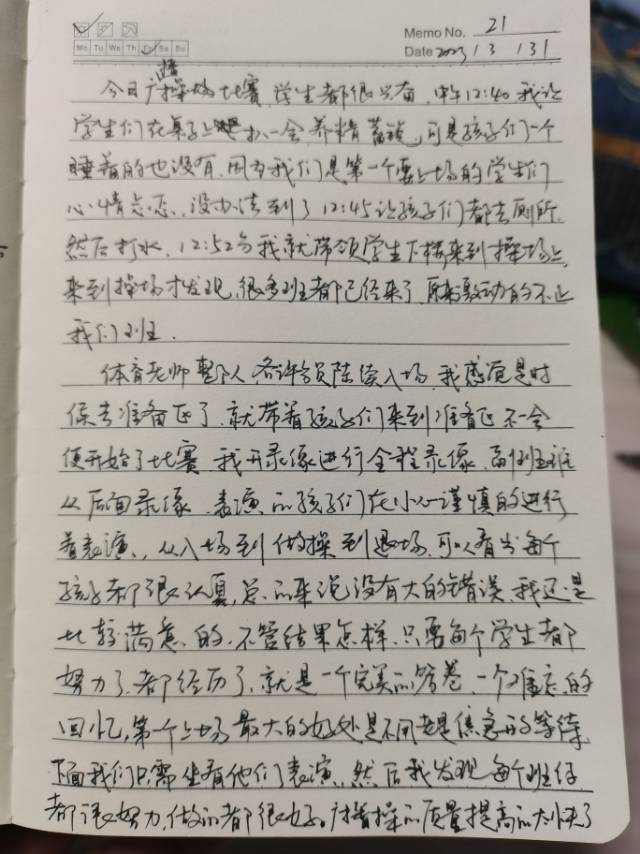 Memo No. 21
Mo Tu We Th Fr Sa Su
Date 2023 / 3 / 31
今日广播操的比赛,学生都很兴奋,中午12:40我让
学生们在桌子上趴一会养精蓄锐,可是孩子们一个
睡着的也没有,因为我们是第一个要上场的学生们
心情忐忑,没办法到了12:45让孩子们都去厕所.
然后打水,12:52分我就带领学生下楼来到操场上
来到操场才发现,很多班都已经来了,原来激动的不止
我们班.
体育老师整队,各评委员陆续入场,我感觉是时
候去准备区了,就带着孩子们来到准备区不一会
便开始了比赛,我开录像进行全程录像,副班主任
从后面录像,表演的孩子们在小心谨慎的进行
着表演,从入场到做操到退场,可以看出每个
孩子都很认真,总的来说没有大的错误,我还是
比较满意的,不管结果怎样,只要每个学生都
努力了,都经历了,就是一个完美的答卷,一个难忘的
回忆,第一个上场最大的好处是不用老是焦急的等待
下面我们只需坐看他们表演,然后我发现每个班级
都很努力,做的都很好。广播操的质量提高的太快了